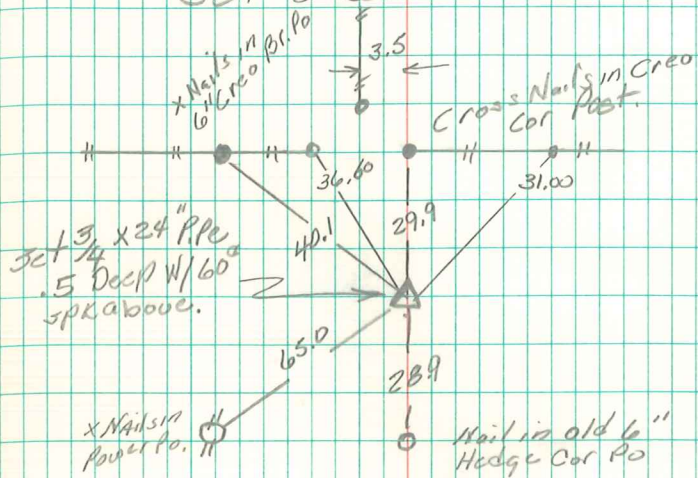 3.5
x Nails in
6" Creo Br. Po
Cross Nails in Creo
Cor Post.
36.60
31.00
40.1
29.9
Set 3/4 x 24" P.Pe
.5 Deep W/60d
spk above.
65.0
28.9
x Nails in
Power Po.
Nail in old 6"
Hedge Cor Po